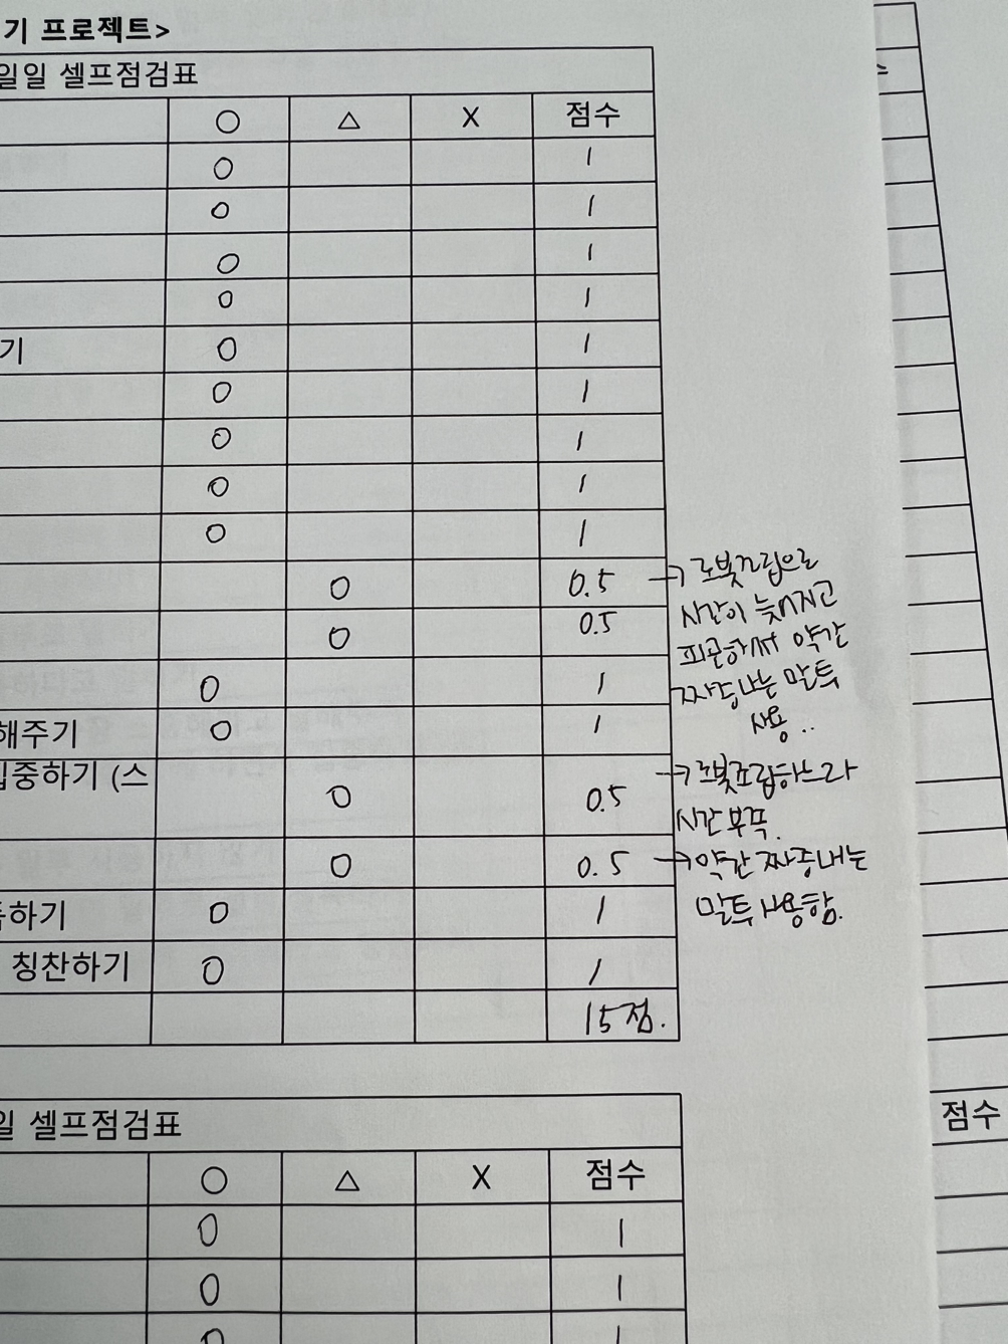 기 프로젝트>
일일 셀프점검표
○ △ X 점수
O 1
O 1
O 1
O 1
기 O 1
O 1
O 1
O 1
O 1
O 0.5 → 로봇조립으로
시간이 늦어지고
O 0.5
피곤하여 약간
O 1
짜증내는 말투
사용..
해주기 O 1
집중하기 (스 O 0.5
→ 로봇조립하느라
시간부족.
O 0.5 → 약간 짜증내는
말투 사용함.
하기 O 1
칭찬하기 O 1
15점.
일 셀프점검표
점수
○ △ X 점수
O 1
O 1
O 1